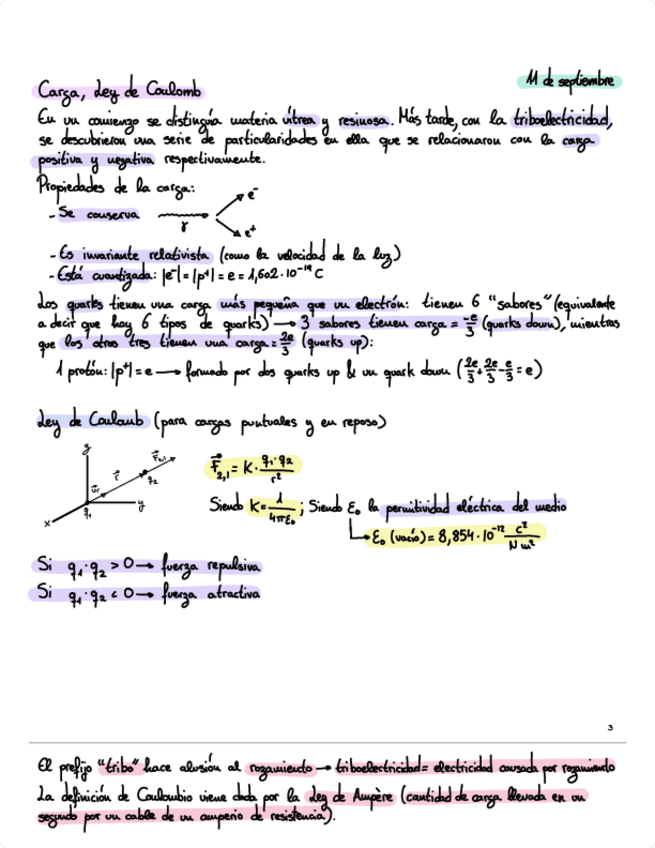 11 de septiembre
Carga, Ley de Coulomb
En un comienzo se distinguía materia vítrea y resinosa. Más tarde, con la triboelectricidad,
se descubrieron una serie de particularidades en ella que se relacionaron con la carga
positiva y negativa respectivamente.
Propiedades de la carga:
- Se conserva γ e⁻ e⁺
- Es invariante relativista (como la velocidad de la luz)
- Está cuantizada: |e⁻| = |p⁺| = e = 1,602·10⁻¹⁹ C
Los quarks tienen una carga más pequeña que un electrón: tienen 6 "sabores" (equivalente
a decir que hay 6 tipos de quarks) → 3 sabores tienen carga = -e/3 (quarks down), mientras
que los otros tres tienen una carga = 2e/3 (quarks up):
1 protón: |p⁺| = e → formado por dos quarks up & un quark down (2e/3 + 2e/3 - e/3 = e)
Ley de Coulomb (para cargas puntuales y en reposo)
z F⃗₂,₁ r⃗ q₂ u⃗r y q₁ x
F⃗₂,₁ = K · q₁·q₂/r²
Siendo K = 1/4πε₀ ; Siendo ε₀ la permitividad eléctrica del medio
ε₀ (vacío) = 8,854·10⁻¹² C²/N m²
Si q₁·q₂ > 0 → fuerza repulsiva
Si q₁·q₂ < 0 → fuerza atractiva
3
El prefijo "tribo" hace alusión al rozamiento → triboelectricidad = electricidad causada por rozamiento
La definición de Coulombio viene dada por la Ley de Ampère (cantidad de carga llevada en un
segundo por un cable de un amperio de resistencia).